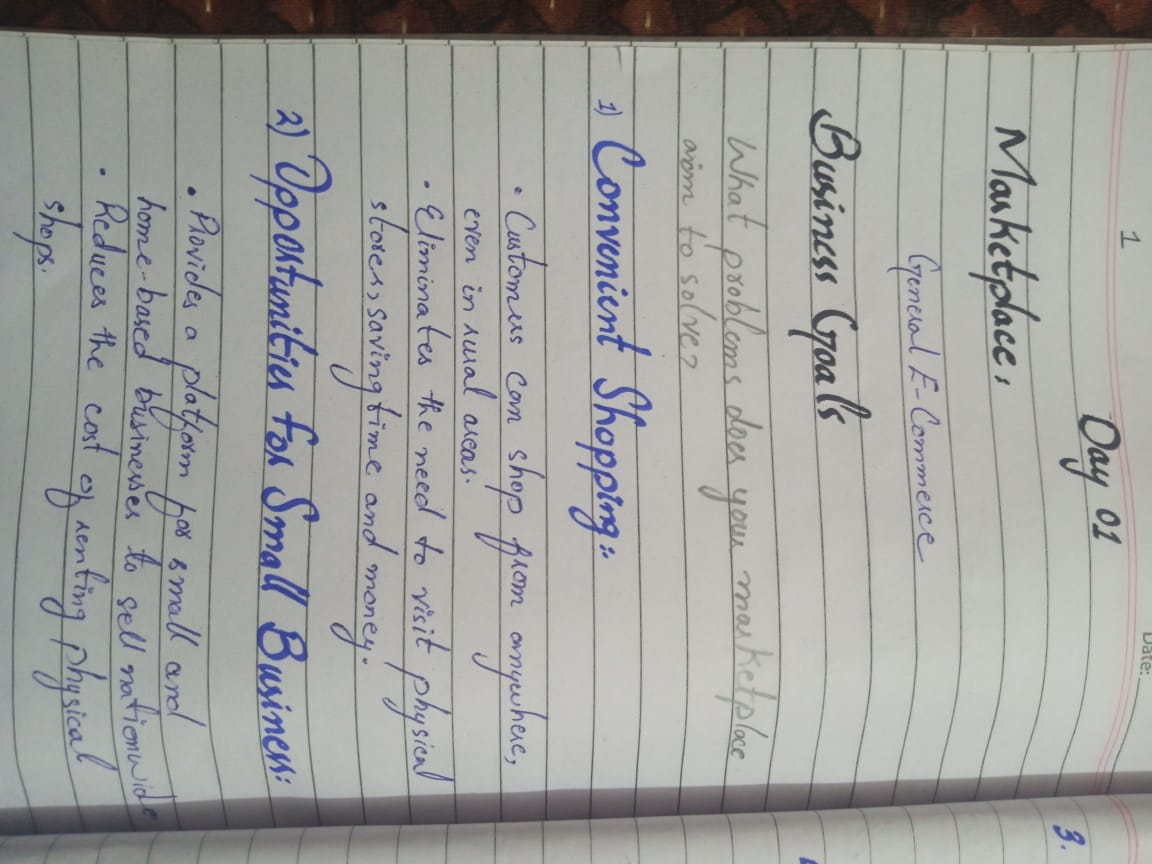 1
Date:
Day 01
Marketplace:
General E-Commerce
Business Goals
What problems does your marketplace
aim to solve?
1) Convenient Shopping:-
• Customers can shop from anywhere,
even in rural areas.
• Eliminates the need to visit physical
stores, saving time and money.
2) Opportunities for Small Business:
• Provides a platform for small and
home-based businesses to sell nationwide
• Reduces the cost of renting physical
shops.
3.